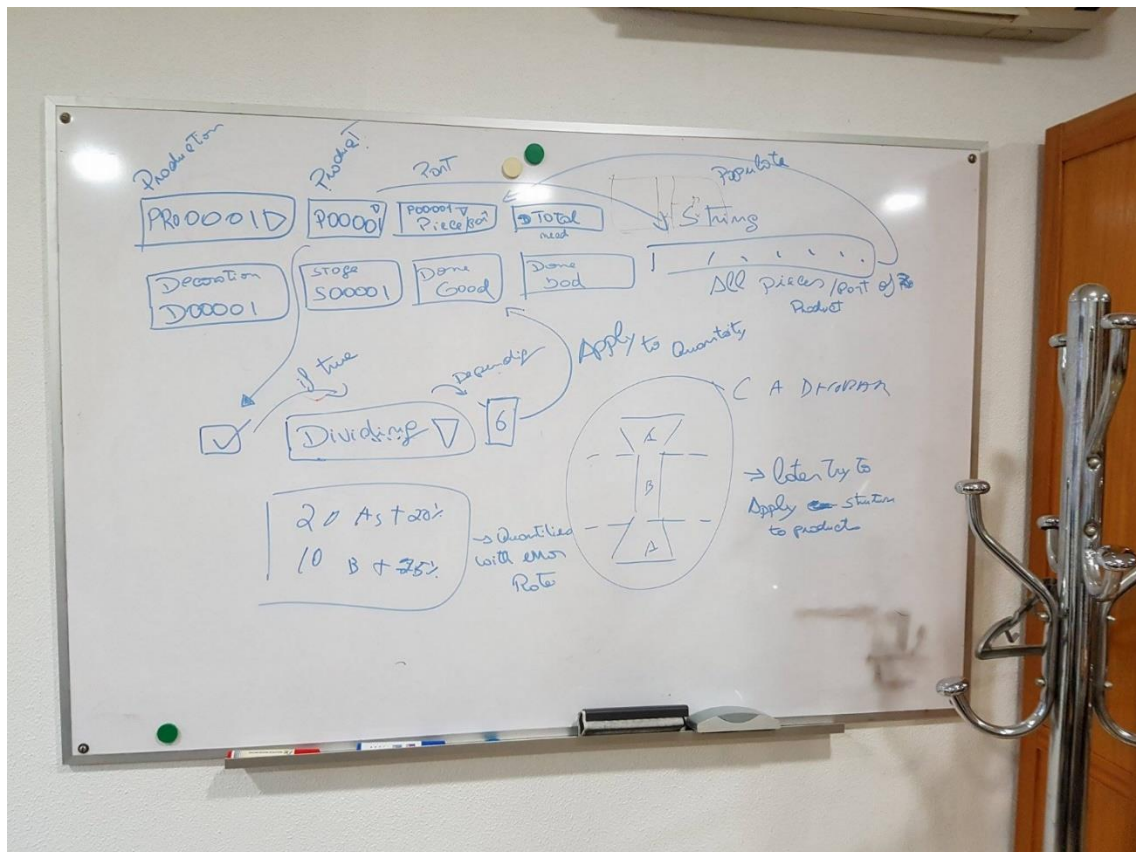 Production
Product
Part
Populate
PR00001
P00001
P00001
Piece
Total
need
String
Decoration
D00001
Stage
S00001
Done
Good
Done
bad
All pieces/part of
Product
if true
Depending
Apply to Quantity
Dividing
6
C A
A
B
A
→ later try to
Apply
to product
20 As + 20%
10 B +
→ Quantities
with error
Rate